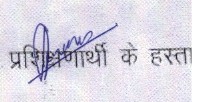 प्रशिक्षणार्थी के हस्ता